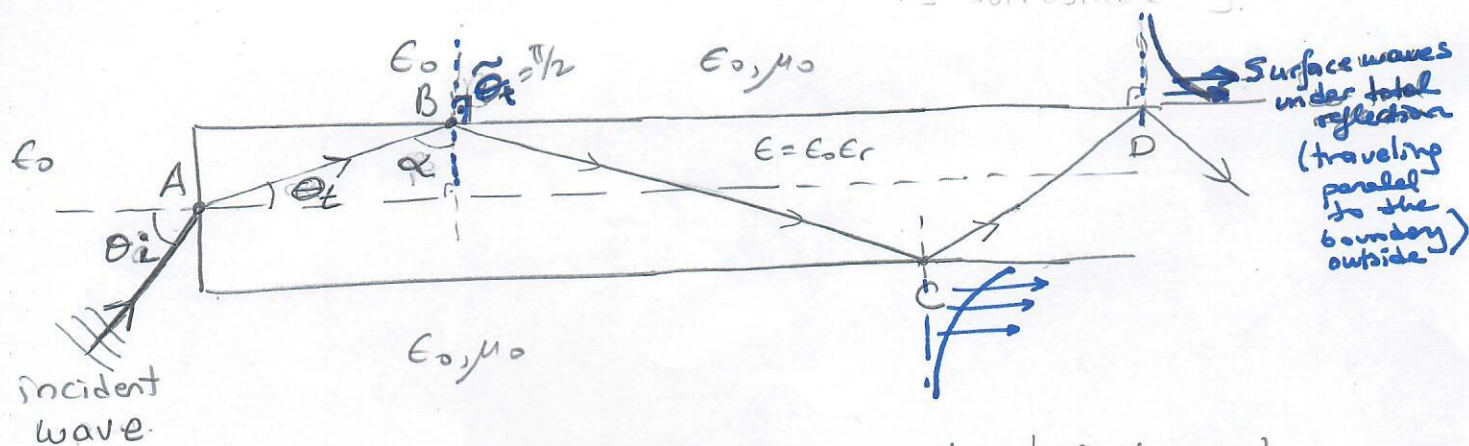 ϵ₀
θ̃t = π/2
ϵ₀, μ₀
B
Surface waves
under total
reflection
(traveling
parallel
to the
boundary)
outside
ϵ₀
A
θt
α
ϵ = ϵ₀ϵr
D
θi
C
ϵ₀, μ₀
incident
wave